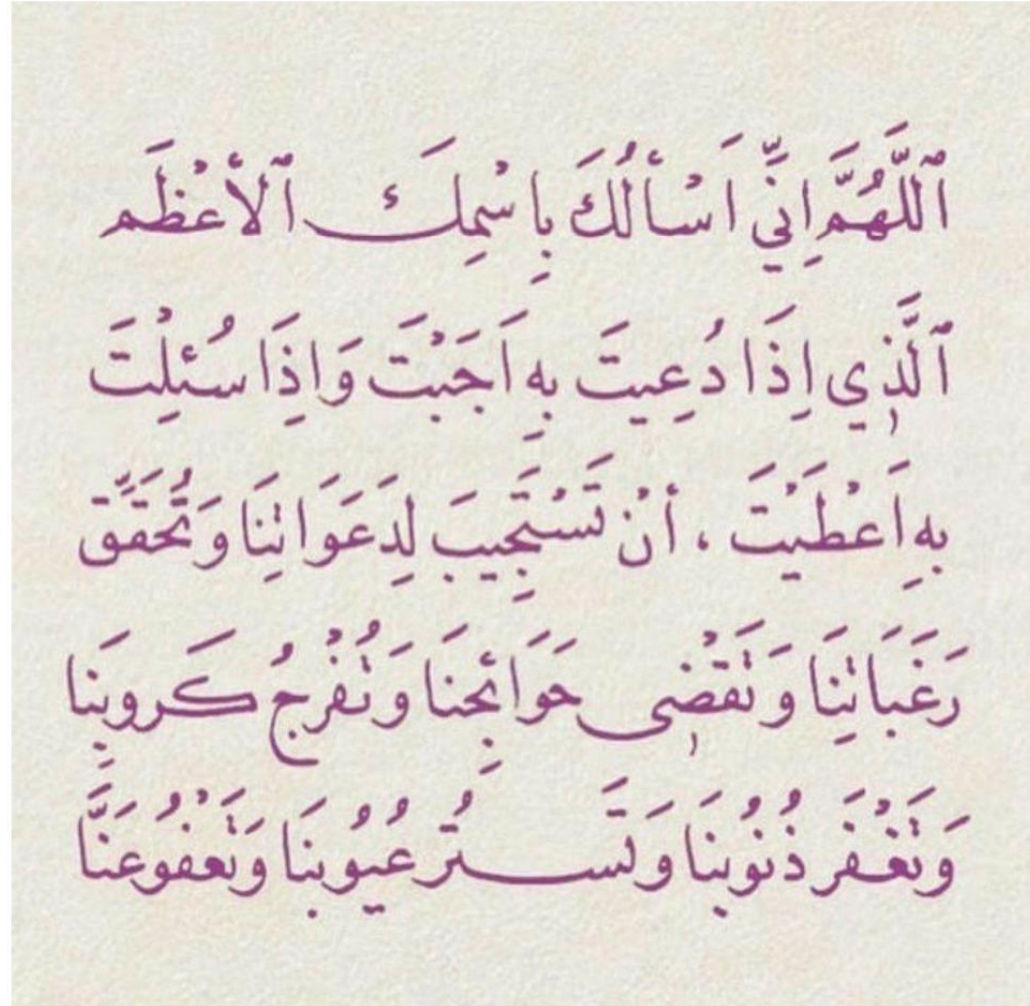 ٱللَّهُمَّ اِنِّي اَسْأَلُكَ بِاسْمِكَ ٱلأَعْظَم
ٱلَّذِي اِذَا دُعِيتَ بِهِ اَجَبْتَ وَاِذَا سُئِلْتَ
بِهِ اَعْطَيْتَ ، أَنْ تَسْتَجِيبَ لِدَعَوَاتِنَا وَتُحَقِّق
رَغَبَاتِنَا وَتَقْضِي حَوَائِجِنَا وَتُفْرِجُ كَروبِنا
وَتَغْفَر ذُنُوبِنَا وَتَستُر عُيُوبِنَا وَتَعْفُو عَنَّا